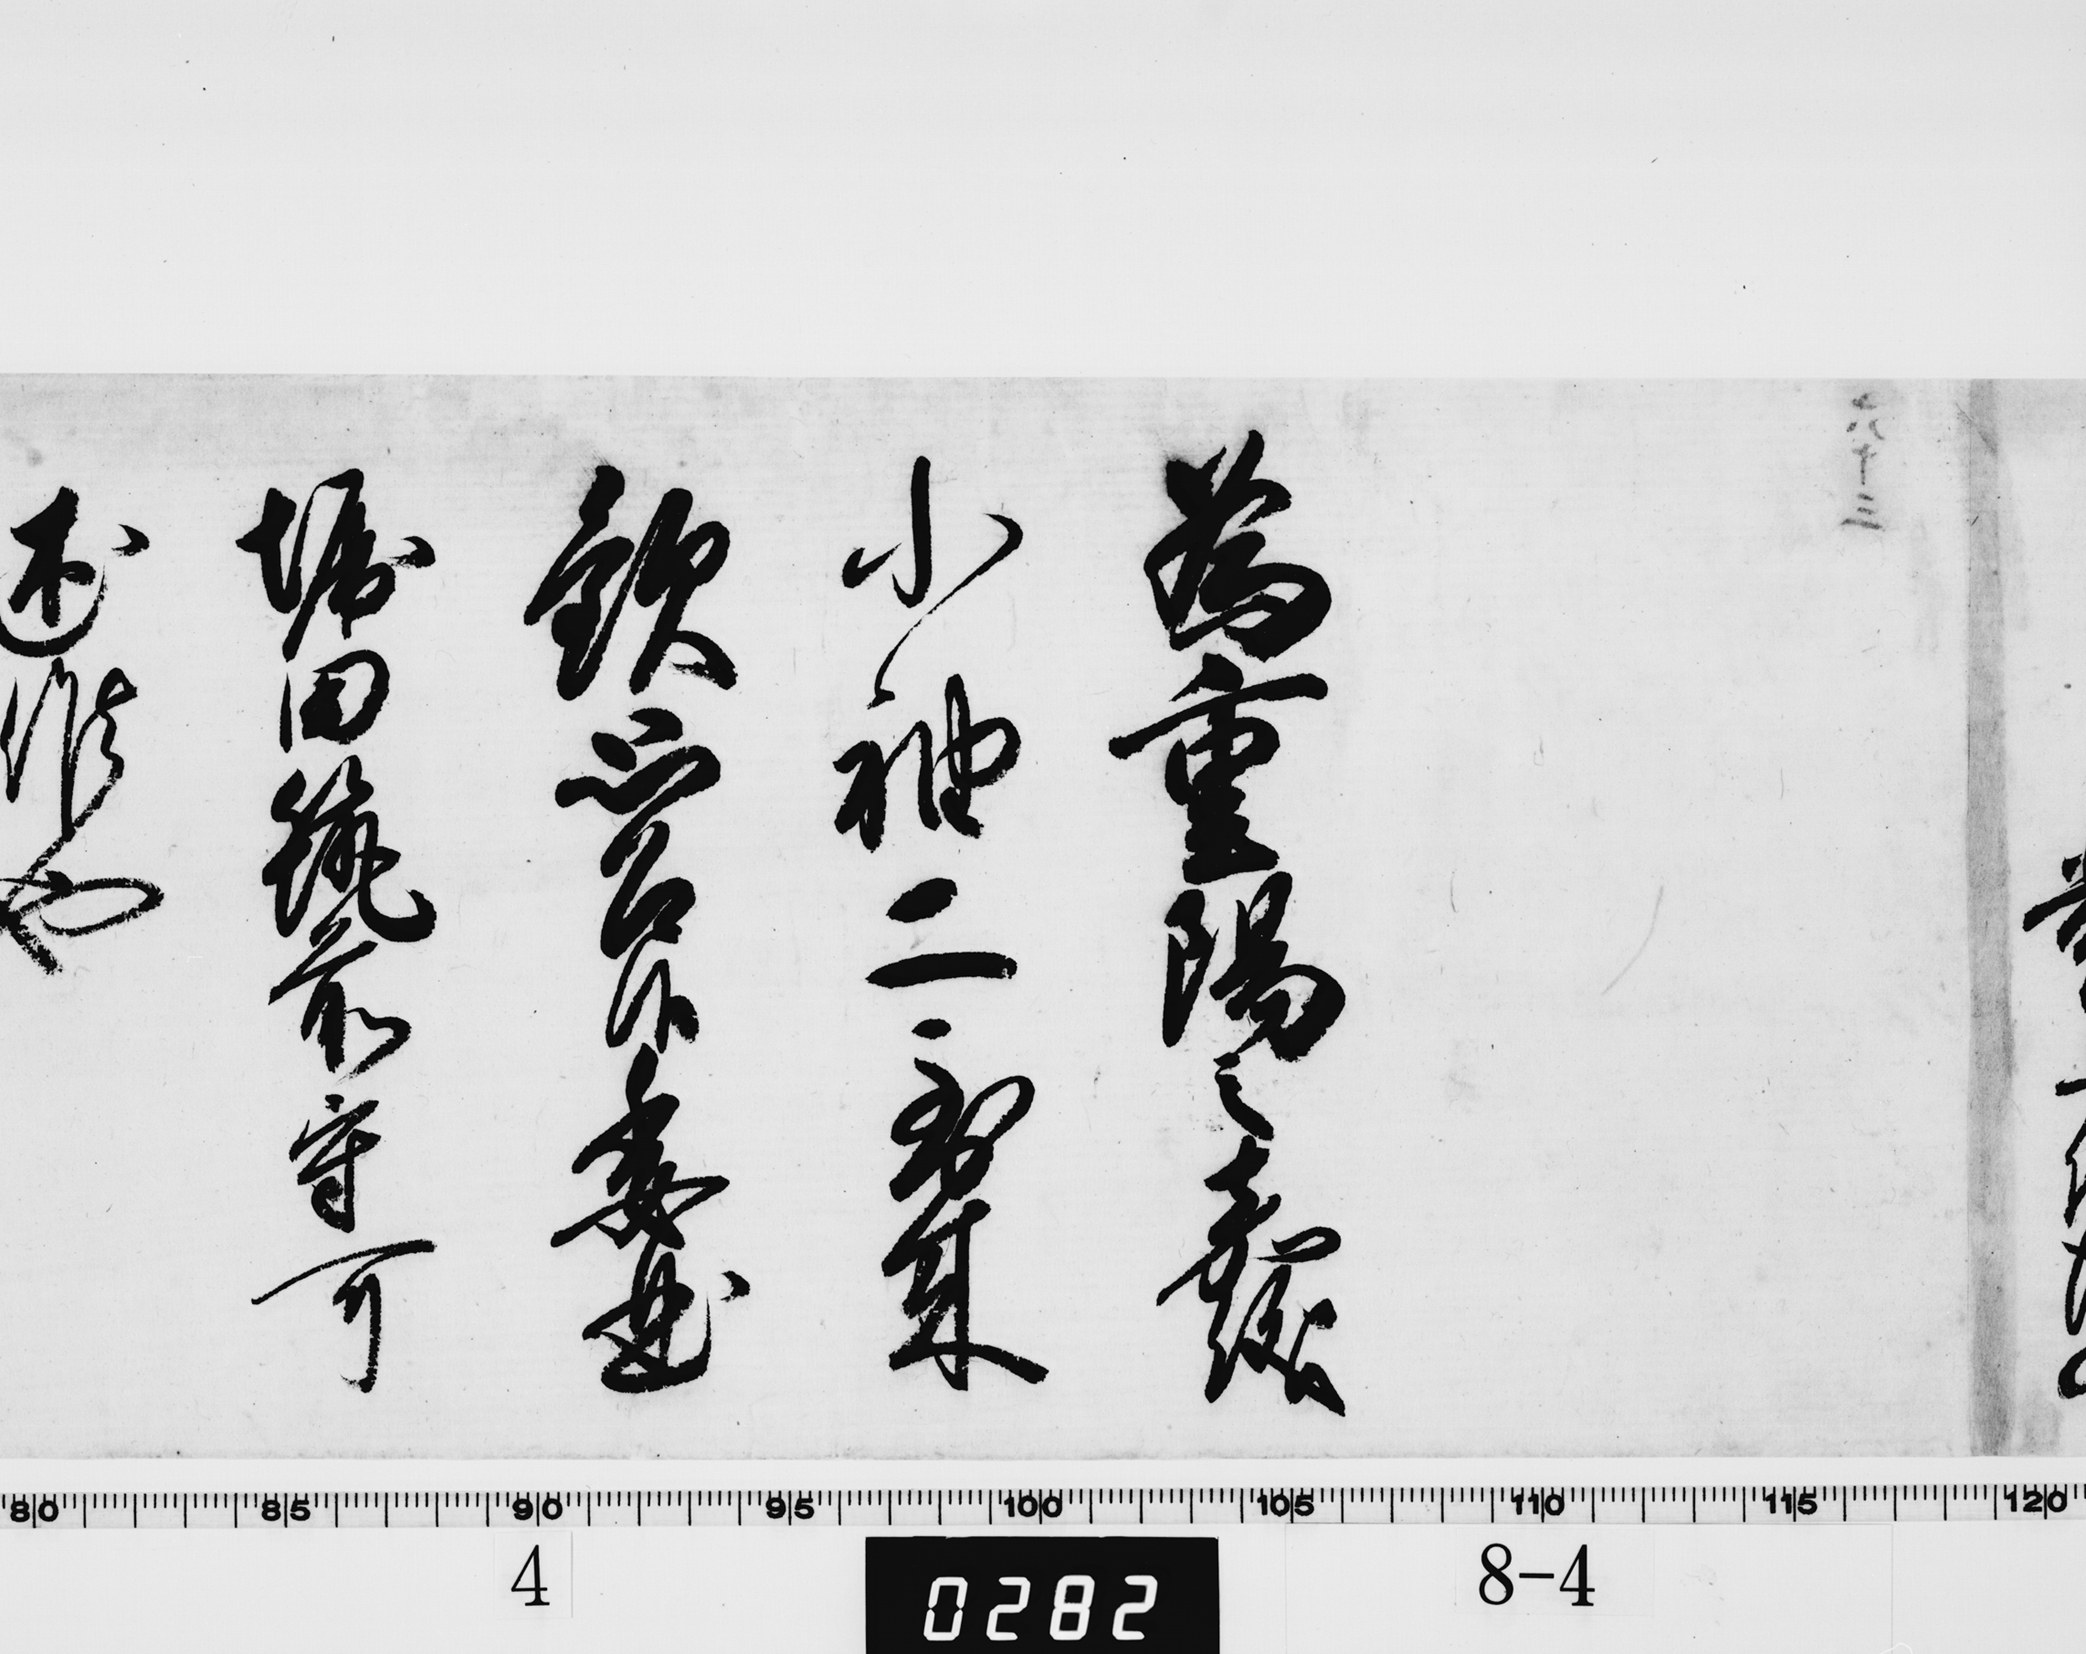 六十三
為重陽之嘉儀
小袖二到来
歓思召候委曲
堀田筑前守可
述候也
80 85 90 95 100 105 110 115 120
4 0282 8-4